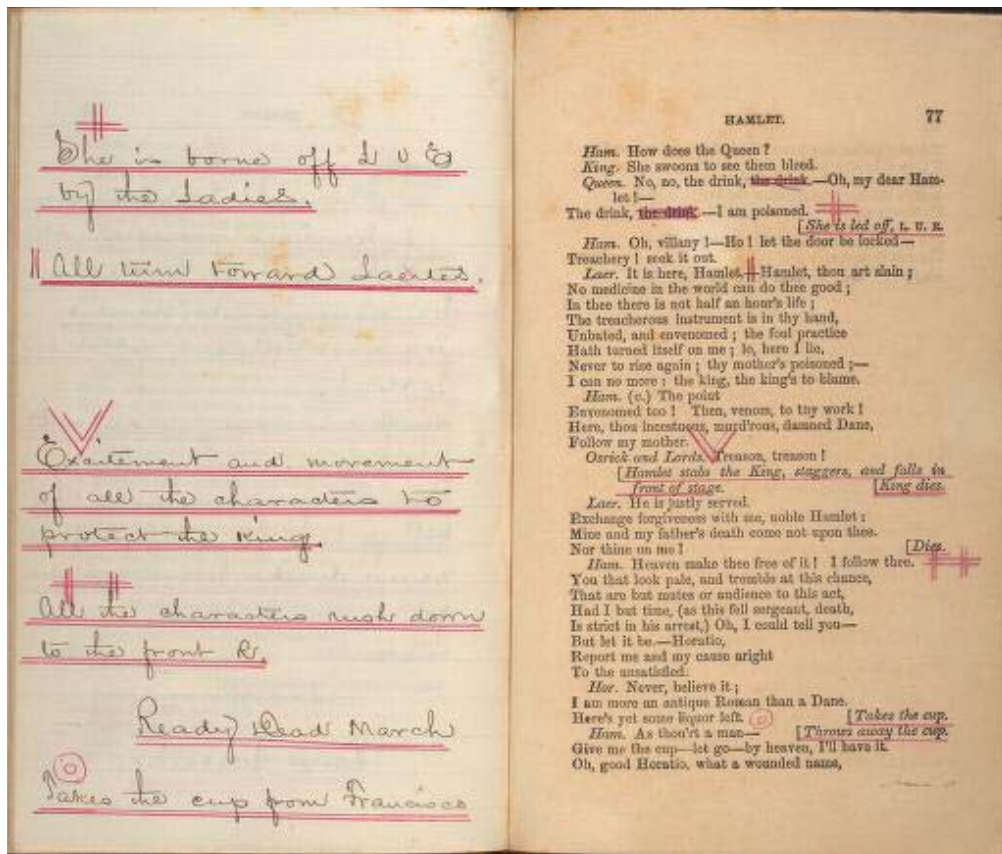 She is borne off L U E
by the Ladies.
All turn toward Laertes.
Excitement and movement
of all the characters to
protect the King.
All the characters rush down
to the front R.
Ready Dead March
Takes the cup from Francisco
HAMLET. 77
Ham. How does the Queen?
King. She swoons to see them bleed.
Queen. No, no, the drink, the drink.—Oh, my dear Ham-
let!—
The drink, the drink—I am poisoned.
[She is led off, L. U. E.
Ham. Oh, villany!—Ho! let the door be locked—
Treachery! seek it out.
Laer. It is here, Hamlet. Hamlet, thou art slain;
No medicine in the world can do thee good;
In thee there is not half an hour's life;
The treacherous instrument is in thy hand,
Unbated, and envenomed; the foul practice
Hath turned itself on me; lo, here I lie,
Never to rise again; thy mother's poisoned;—
I can no more: the king, the king's to blame.
Ham. (C.) The point
Envenomed too! Then, venom, to thy work!
Here, thou incestuous, murd'rous, damned Dane,
Follow my mother.
Osrick and Lords. Treason, treason!
[Hamlet stabs the King, staggers, and falls in
front of stage. [King dies.
Laer. He is justly served.
Exchange forgiveness with me, noble Hamlet:
Mine and my father's death come not upon thee.
Nor thine on me! [Dies.
Ham. Heaven make thee free of it! I follow thee.
You that look pale, and tremble at this chance,
That are but mutes or audience to this act,
Had I but time, (as this fell sergeant, death,
Is strict in his arrest,) Oh, I could tell you—
But let it be.—Horatio,
Report me and my cause aright
To the unsatisfied.
Hor. Never, believe it;
I am more an antique Roman than a Dane.
Here's yet some liquor left. [Takes the cup.
Ham. As thou'rt a man— [Throws away the cup.
Give me the cup—let go—by heaven, I'll have it.
Oh, good Horatio, what a wounded name,